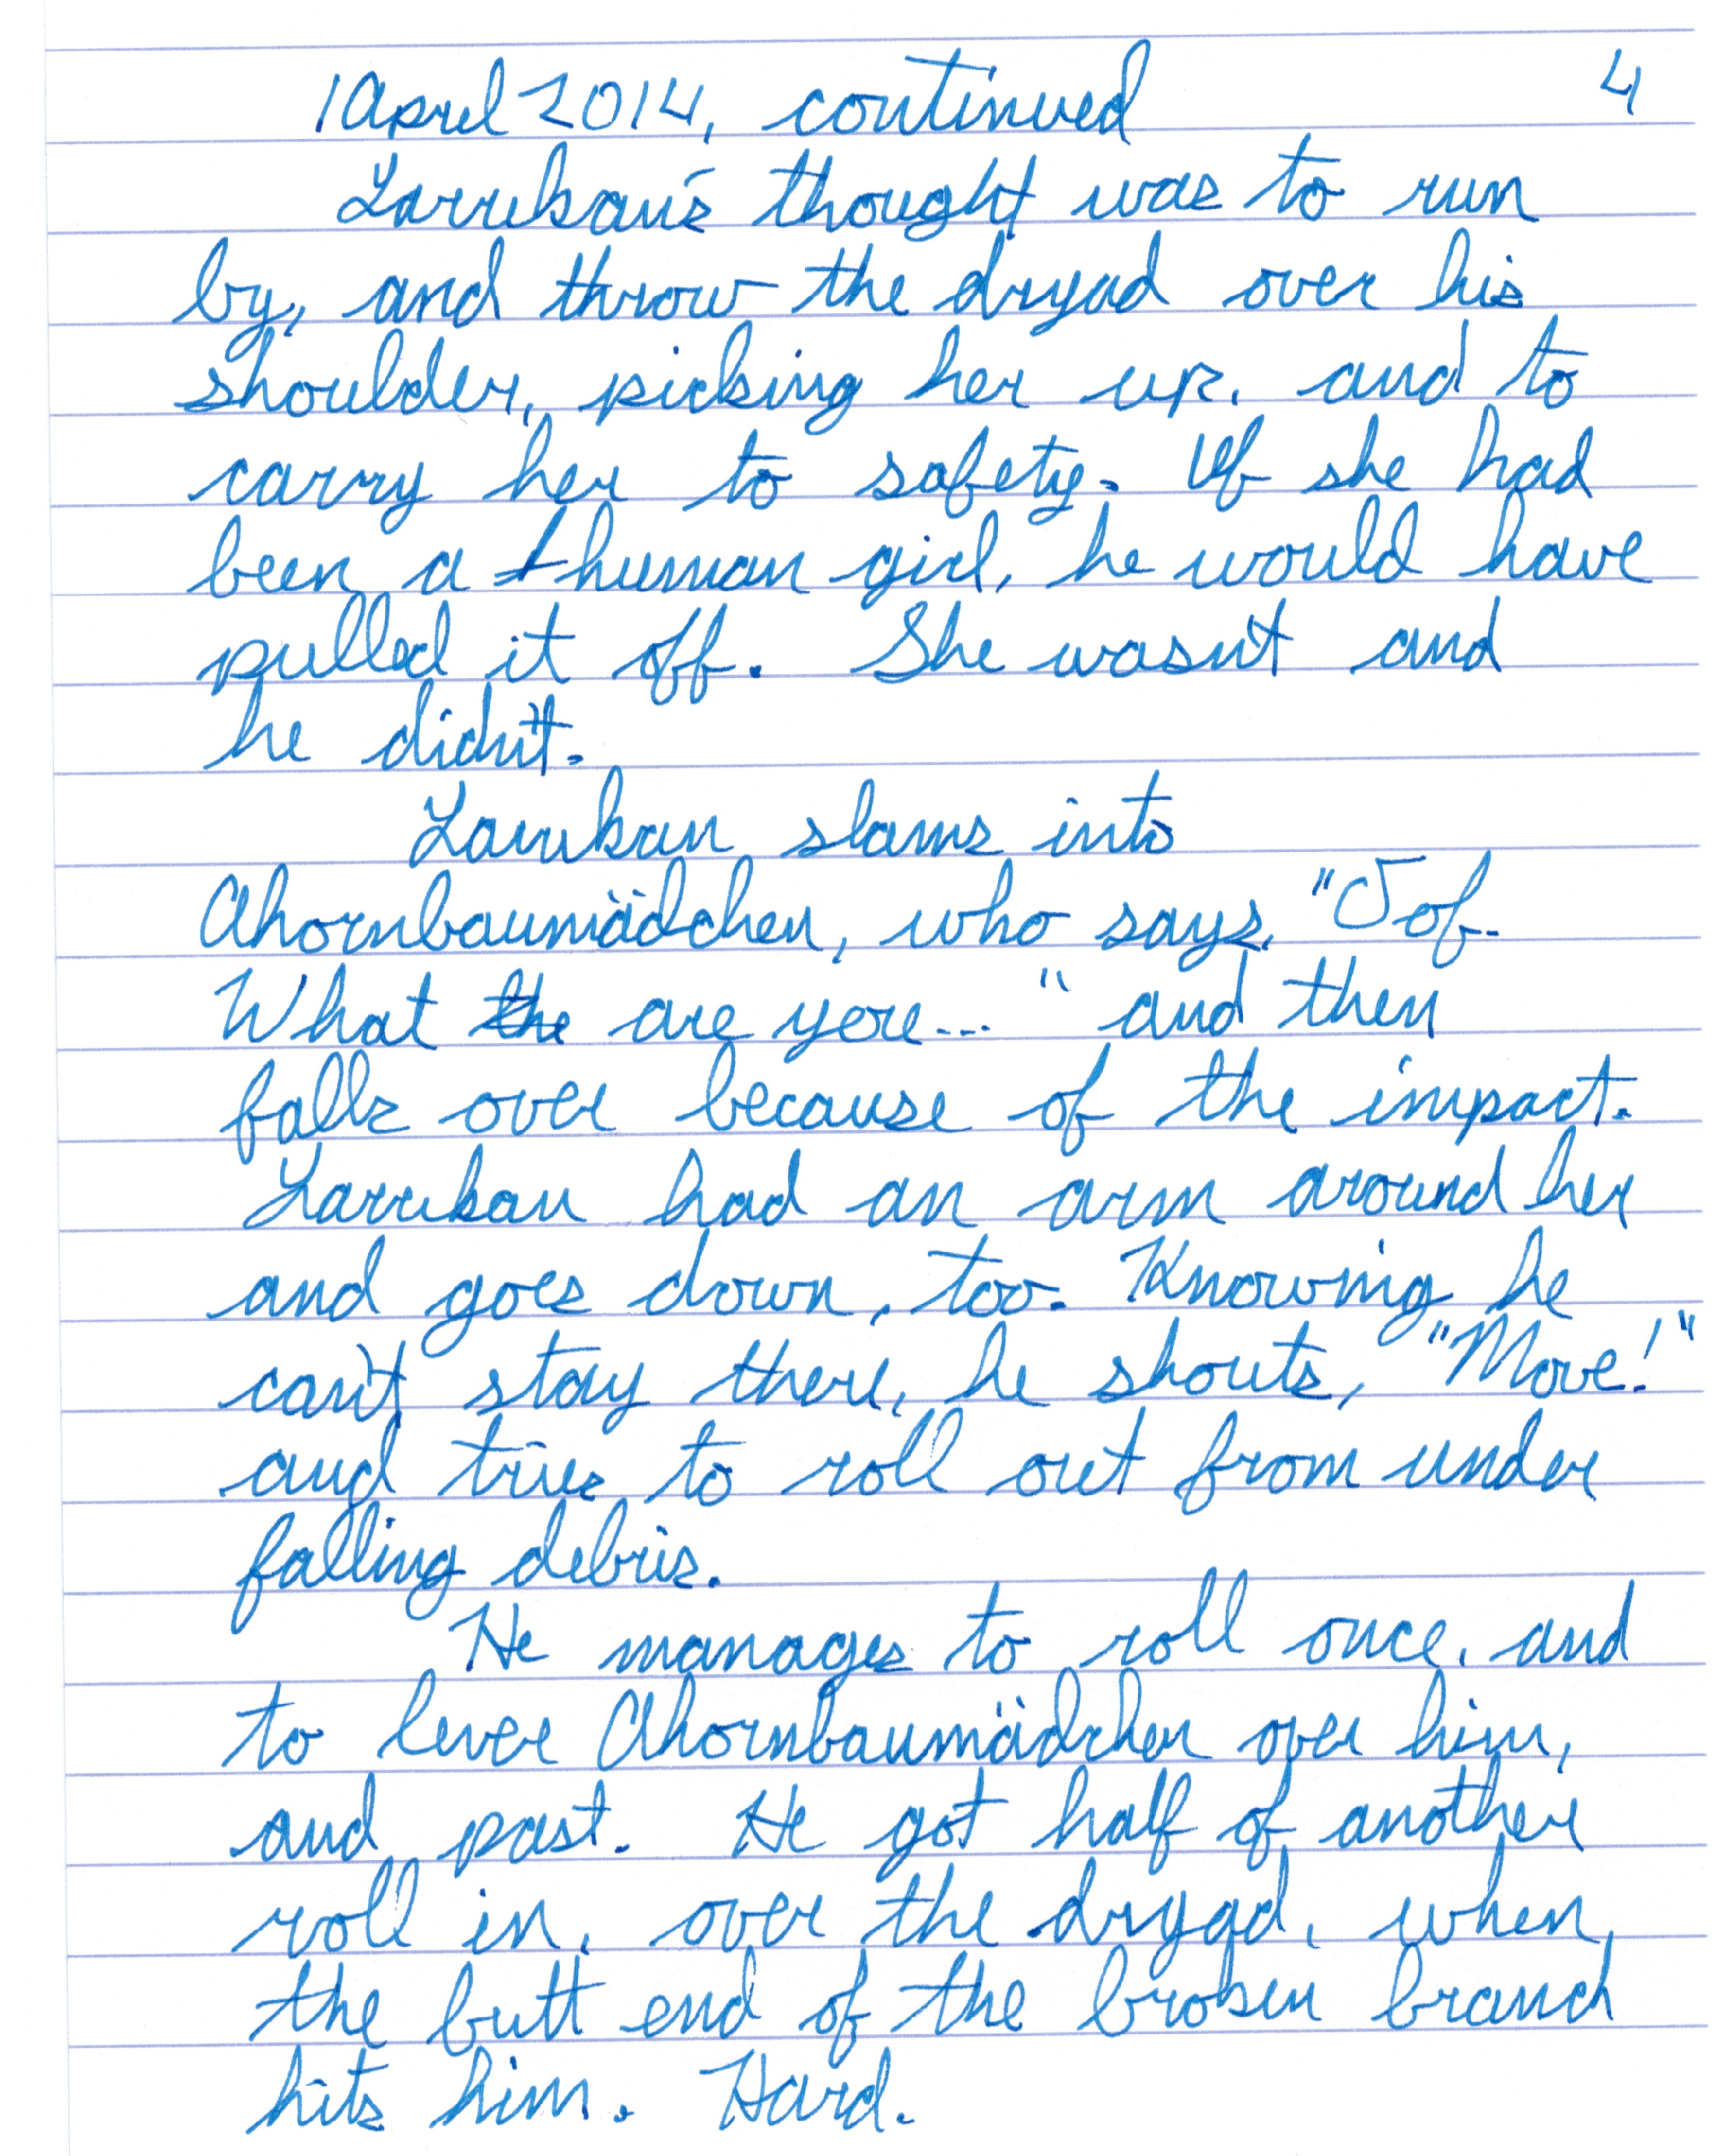 1 April 2014, continued 4
Larrukan's thought was to run
by, and throw the dryad over his
shoulder, picking her up, and to
carry her to safety. If she had
been a human girl, he would have
pulled it off. She wasn't and
he didn't.
Larrukan slams into
Ahornbaumädchen, who says, "Oof.
What the are you..." and then
falls over because of the impact.
Larrukan had an arm around her
and goes down, too. Knowing he
can't stay there, he shouts, "Move!"
and tries to roll out from under
falling debris.
He manages to roll once, and
to lever Ahornbaumädchen over him,
and past. He got half of another
roll in, over the dryad, when
the butt end of the broken branch
hits him. Hard.